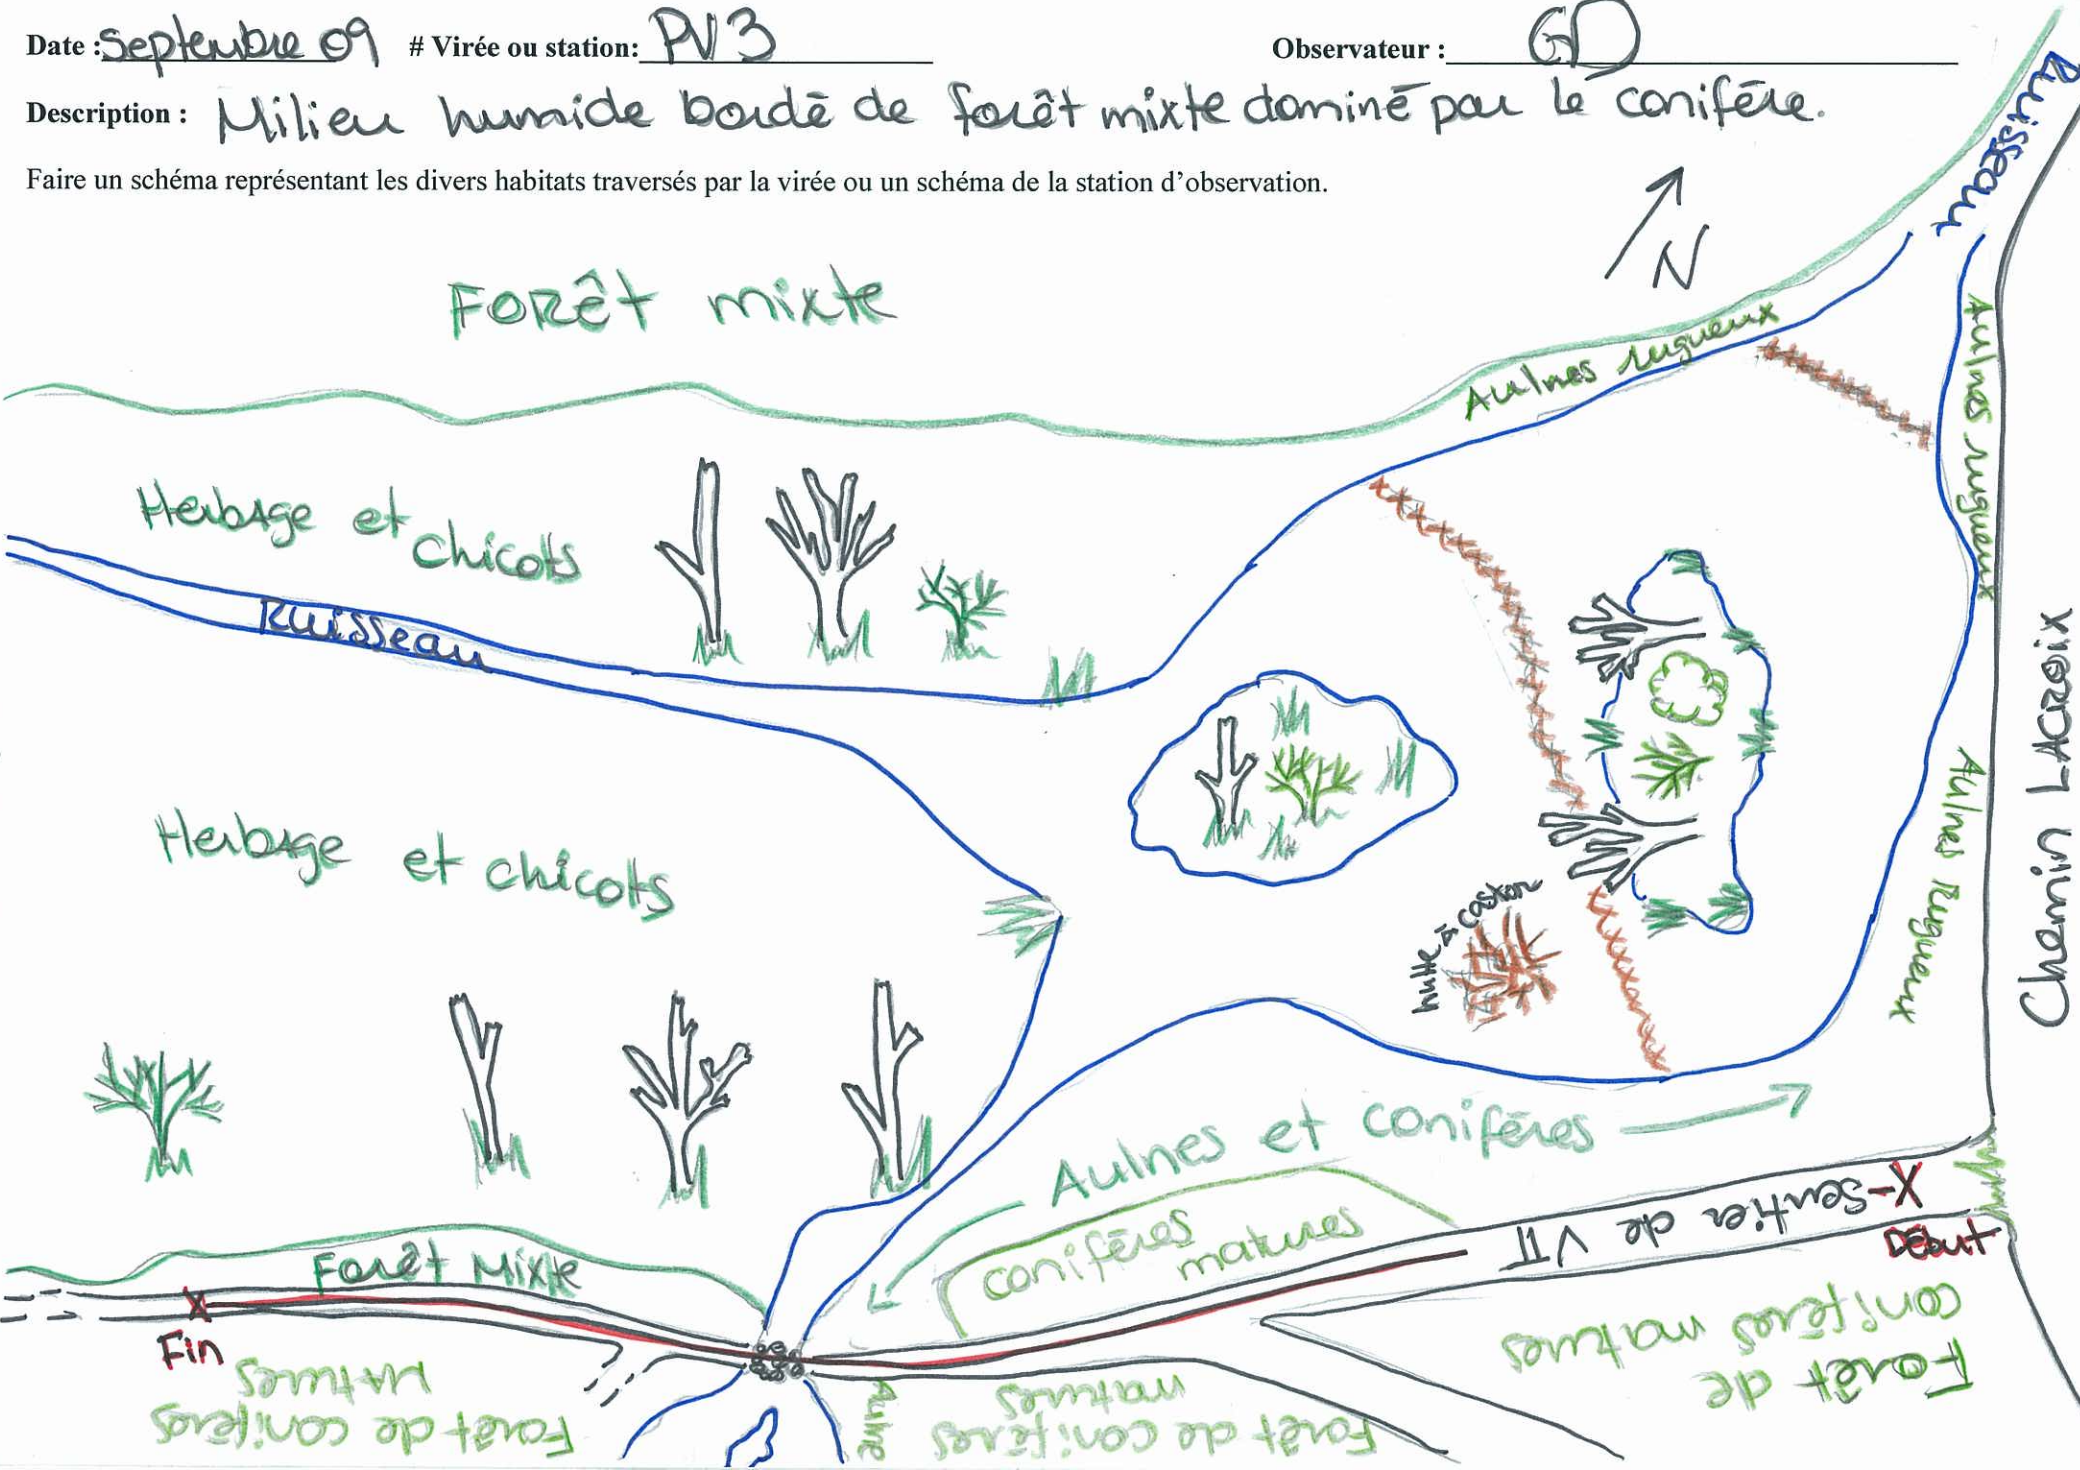 Date : Septembre 09 # Virée ou station: PV3 Observateur : GD
Description : Milieu humide bordé de forêt mixte dominé par le conifère.
Faire un schéma représentant les divers habitats traversés par la virée ou un schéma de la station d'observation.
Ruisseau
N
Forêt mixte
Aulnes rugueux
Aulnes rugueux
Herbage et chicots
Ruisseau
Chemin Lacroix
Herbage et chicots
Aulnes Rugueux
hutte à castor
Aulnes et conifères
X-Sentier de VTT
conifères
matures
Début
Forêt Mixte
X
Fin
Forêt de
conifères matures
Forêt de conifères
matures
Aulne
Forêt de conifères
matures